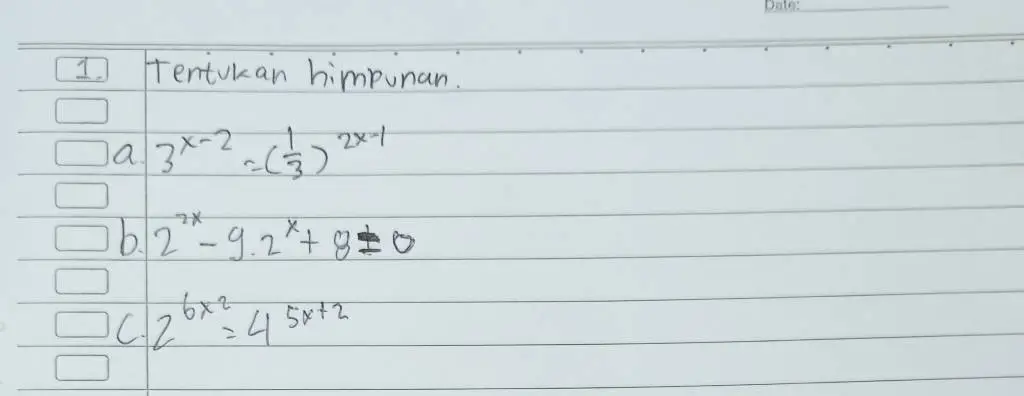 Date:
1. Tentukan himpunan.
a. 3^{x-2} = (1/3)^{2x-1}
b. 2^{2x} - 9.2^{x} + 8 = 0
c. 2^{6x^2} = 4^{5x+2}